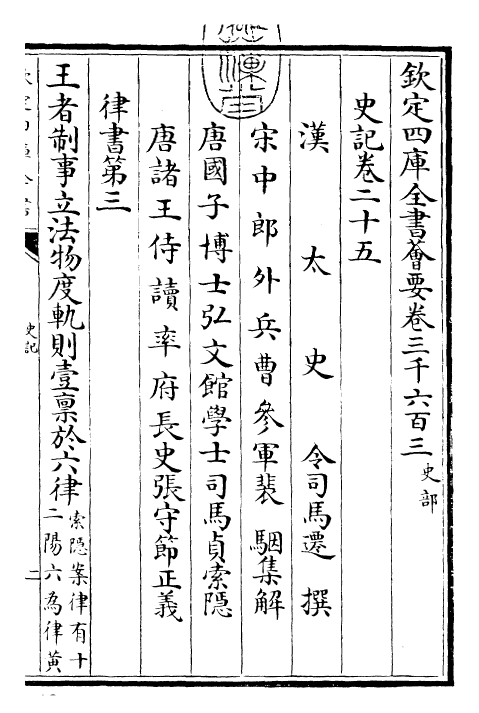 欽定四庫全書薈要卷三千六百三 史部
史記卷二十五
漢太史令司馬遷撰
宋中郎外兵曹參軍裴駰集解
唐國子博士弘文館學士司馬貞索隱
唐諸王侍讀率府長史張守節正義
律書第三
王者制事立法物度軌則壹禀於六律 索隱案律有十
二陽六為律黃
史記